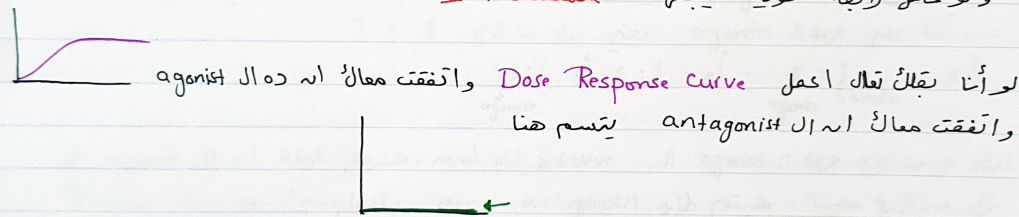 لو أنا بقلك تعال اعمل Dose Response Curve واتفقت معاك ان ده ال agonist
واتفقت معاك ان ال antagonist يترسم هنا